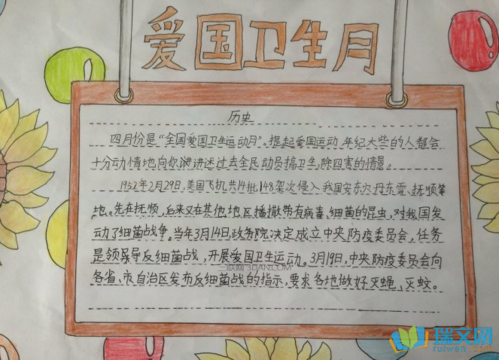 爱国卫生月
历史
四月份是“全国爱国卫生运动月”。提起爱国运动,年纪大些的人都会
十分动情地向你演讲述过去全民动员搞卫生,除四害的情景。
1952年2月29日,美国飞机共14批148架次侵入我国安东、丹东、抚顺等
地。先在抚顺,后来又在其他地区播撒带有病毒、细菌的昆虫,对我国发
动了细菌战争。当年3月14日政务院决定成立中央防疫委员会,任务
是领导反细菌战,开展爱国卫生运动。3月19日,中央防疫委员会向
各省、市自治区发布反细菌战的指示,要求各地做好灭蝇,灭蚊。
瑞文网
ruiwen.com